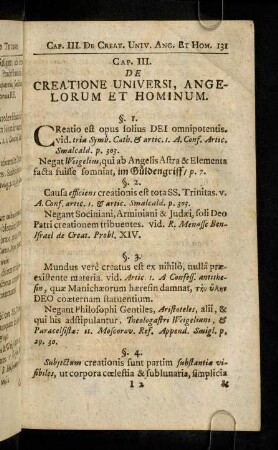 CAP. III. DE CREAT. UNIV. ANG. Et HOM. 131
CAP. III.
DE
CREATIONE UNIVERSI, ANGE-
LORUM ET HOMINUM.
§. 1.
CReatio est opus solius DEI omnipotentis.
vid. tria Symb. Cath. & artic. 1. A. Conf. Artic.
Smalcald. p. 303.
Negat Weigelius, qui ab Angelis Astra & Elementa
facta fuisse somniat, im Güldengriff, p. 7.
§. 2.
Causa efficiens creationis est tota SS. Trinitas. v.
A. Conf. artic. 1. & artic. Smalcald. p. 303.
Negant Sociniani, Arminiani & Judæi, soli Deo
Patri creationem tribuentes. vid. R. Menasse Ben-
Israel de Creat. Probl. XIV.
§. 3.
Mundus verè creatus est ex nihilo, nullâ præ-
existente materia. vid. Artic. 1. A Confess. antithe-
sin, quæ Manichæorum hæresin damnat, τὴν ὕλην
DEO coæternam statuentium.
Negant Philosophi Gentiles, Aristoteles, alii, &
qui his adstipulantur, Theologastri Weigeliani, &
Paracelsistæ: it. Moscorov. Ref. Append. Smigl. p.
29. 30.
§. 4.
Subjectum creationis sunt partim substantiæ vi-
sibiles, ut corpora cœlestia & sublunaria, simplicia
I 2 &